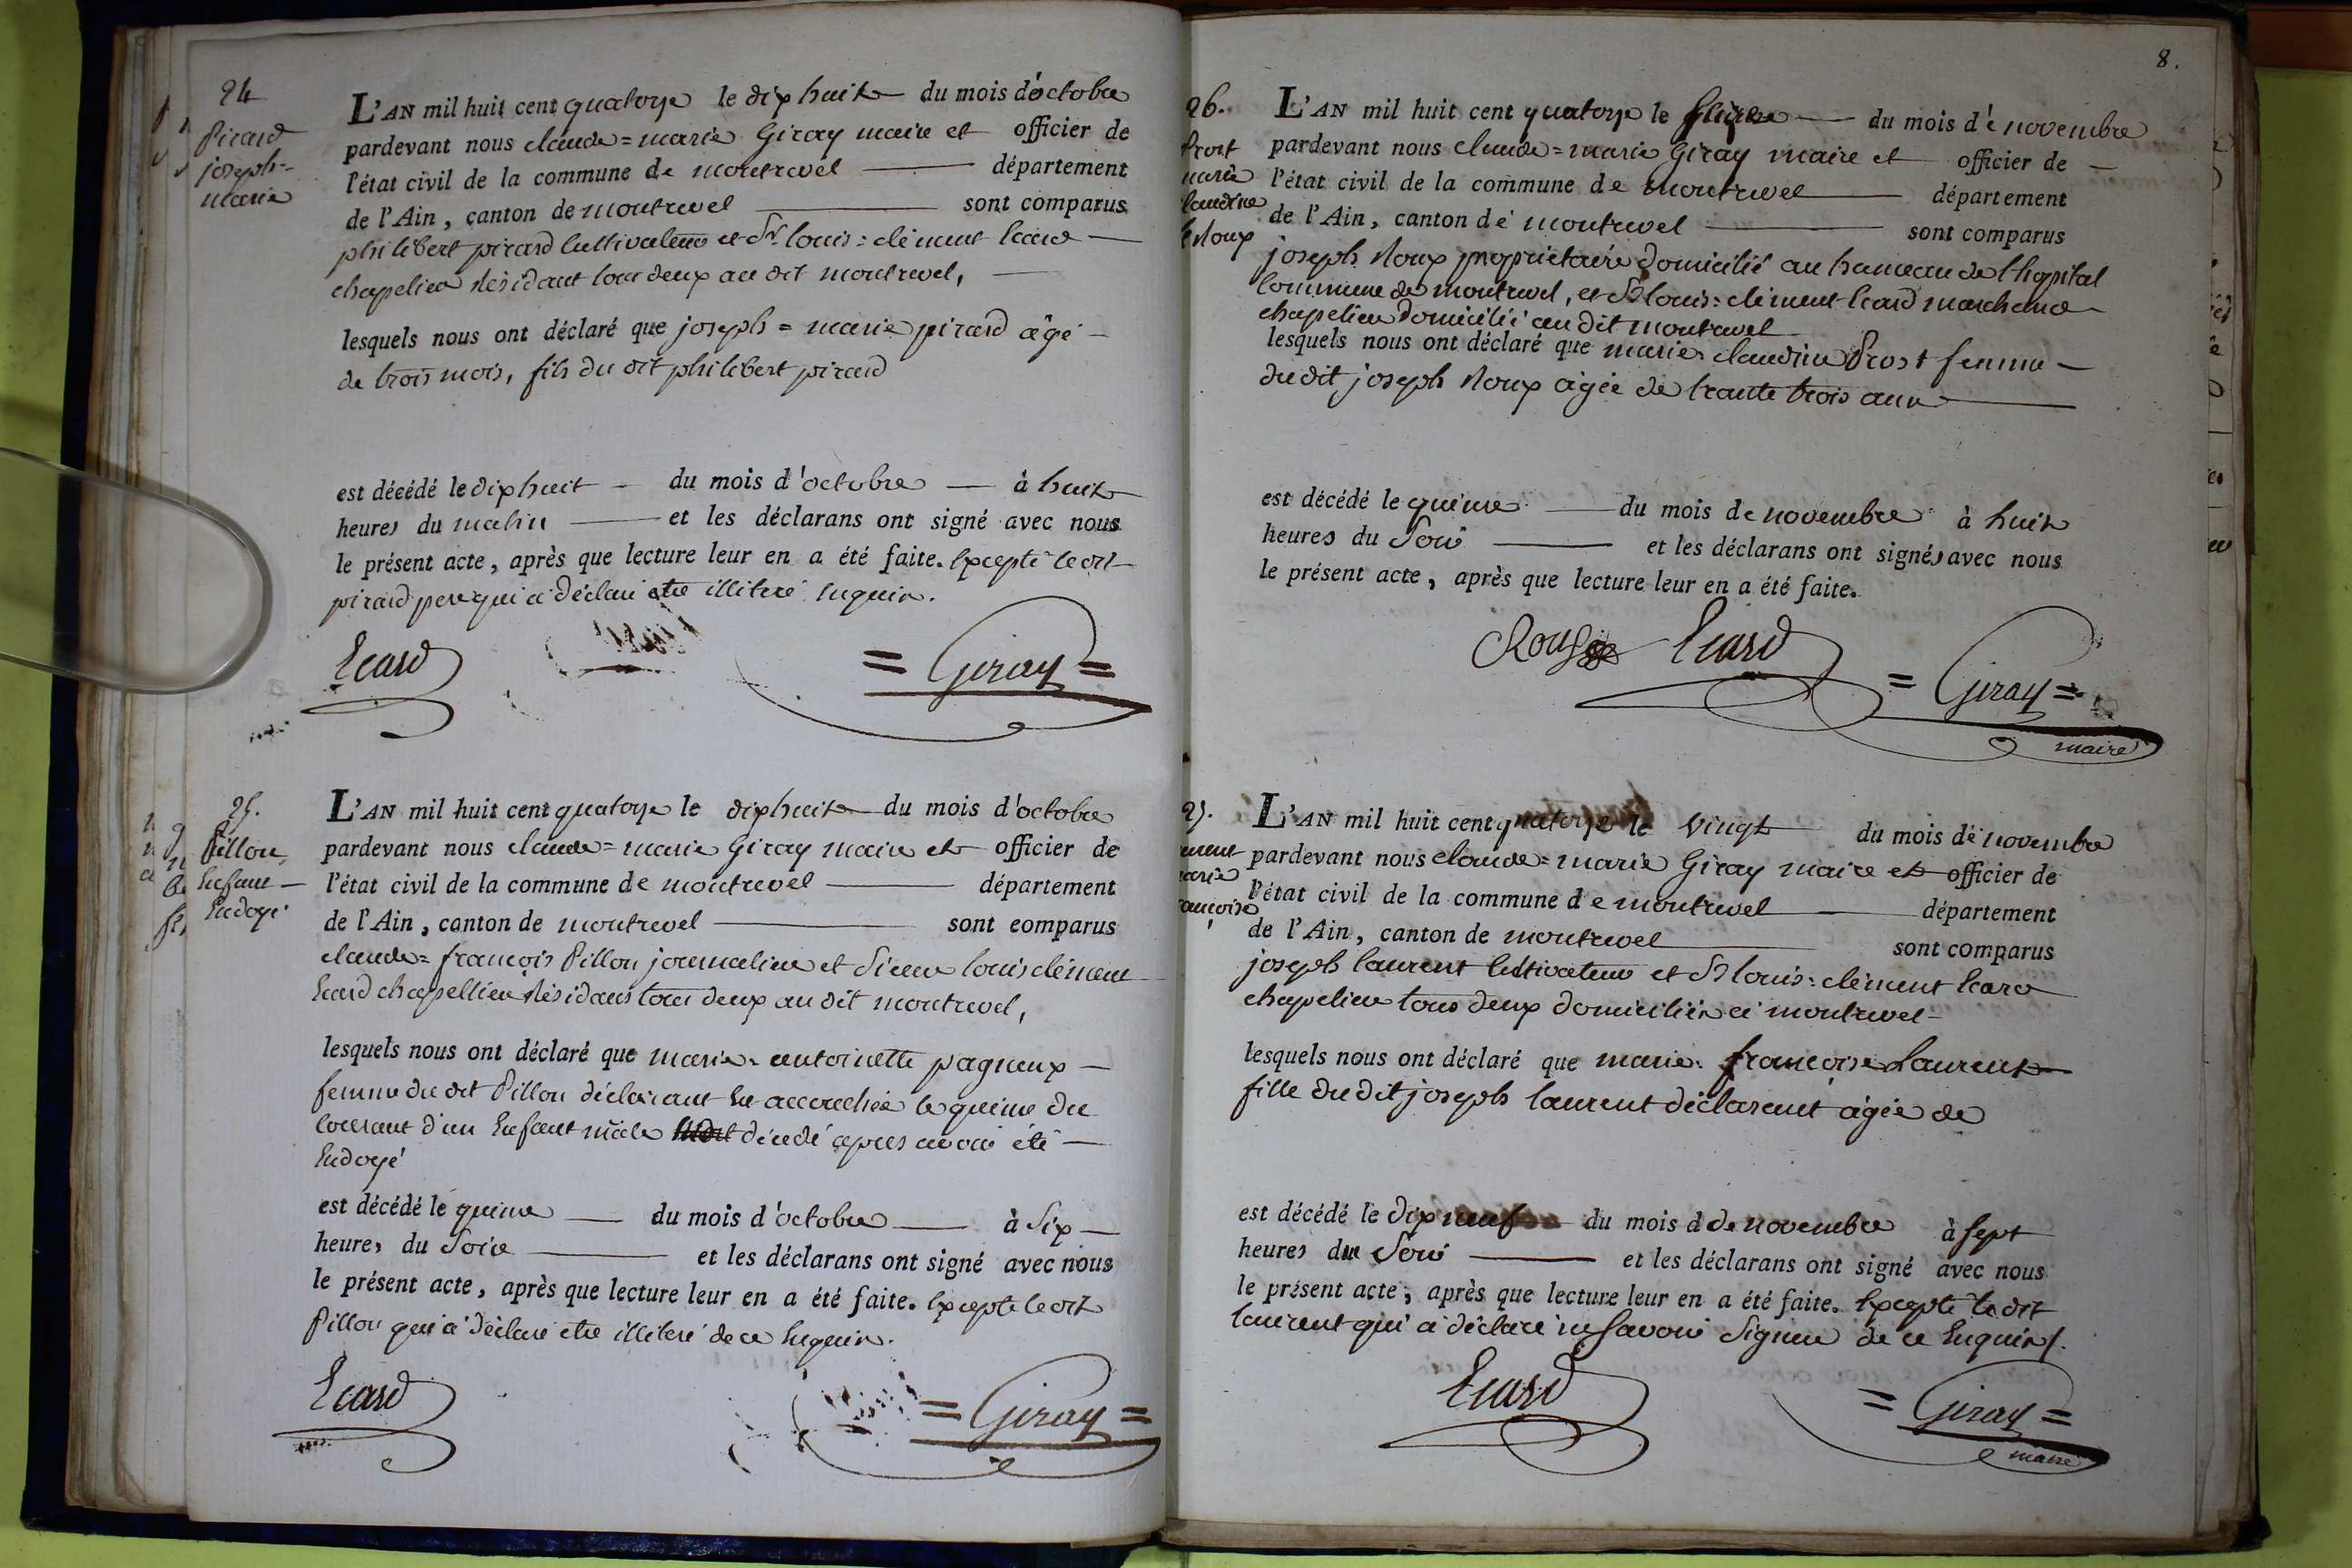 24
Picard
joseph=
marie
L'AN mil huit cent quatorze le dix huit du mois d'octobre
pardevant nous claude=marie Giray maire et officier de
l'état civil de la commune de montrevel département
de l'Ain, canton de montrevel sont comparus
philibert picard Cultivateur et Sr. louis=clément Ecard
chapelier résidant tous deux au dit montrevel,
lesquels nous ont déclaré que joseph=marie picard âgé
de trois mois, fils du dit philibert picard
est décédé le dix huit du mois d'octobre à huit
heures du matin et les déclarans ont signé avec nous
le présent acte, après que lecture leur en a été faite. Excepté le dit
picard pere qui a déclaré etre illiteré Enquis.
Ecard
= Giray =
25.
Pillon
Enfant
Endoyé
L'AN mil huit cent quatorze le dix huit du mois d'octobre
pardevant nous claude=marie Giray maire et officier de
l'état civil de la commune de montrevel département
de l'Ain, canton de montrevel sont comparus
claude=françois Pillon journalier et Sieur louis clément
Ecard chapellier résidans tous deux au dit montrevel,
lesquels nous ont déclaré que marie=antoinette pagneux
femme du dit Pillon déclarant Est accouchée le quinze du
courant d'un Enfant mâle mort décédé apres avoir été
Endoyé
est décédé le quinze du mois d'octobre à Six
heures du Soir et les déclarans ont signé avec nous
le présent acte, après que lecture leur en a été faite. Excepté le dit
Pillon qui a déclaré etre illiteré de ce Enquis.
Ecard
= Giray =
8.
26.
Prost
marie
claudine
L'AN mil huit cent quatorze le du mois de novembre
pardevant nous claude=marie Giray maire et officier de
l'état civil de la commune de montrevel département
de l'Ain, canton de montrevel sont comparus
joseph Roux propriétaire domicilié au hameau de l'hopital
Commune de montrevel, et Sr louis=clément Ecard marchand
chapelier domicilié au dit montrevel
lesquels nous ont déclaré que marie claudine Prost femme
du dit joseph Roux âgée de trante trois ans
est décédé le quinze du mois de novembre à huit
heures du Soir et les déclarans ont signés avec nous
le présent acte, après que lecture leur en a été faite.
Roux Ecard
= Giray =
maire
27.
L'AN mil huit cent quatorze le Vingt du mois de novembre
pardevant nous claude=marie Giray maire et officier de
l'état civil de la commune de montrevel département
de l'Ain, canton de montrevel sont comparus
joseph laurent Cultivateur et Sr louis=clément Ecard
chapelier tous deux domiciliés à montrevel
lesquels nous ont déclaré que marie=françoise Laurent
fille du dit joseph laurent déclarent âgée de
est décédé le dix neuf du mois d de novembre à sept
heures du Soir et les déclarans ont signé avec nous
le présent acte, après que lecture leur en a été faite. Excepté le dit
laurent qui a déclaré ne savoir Signer de ce Enquis.
Ecard
= Giray =
maire